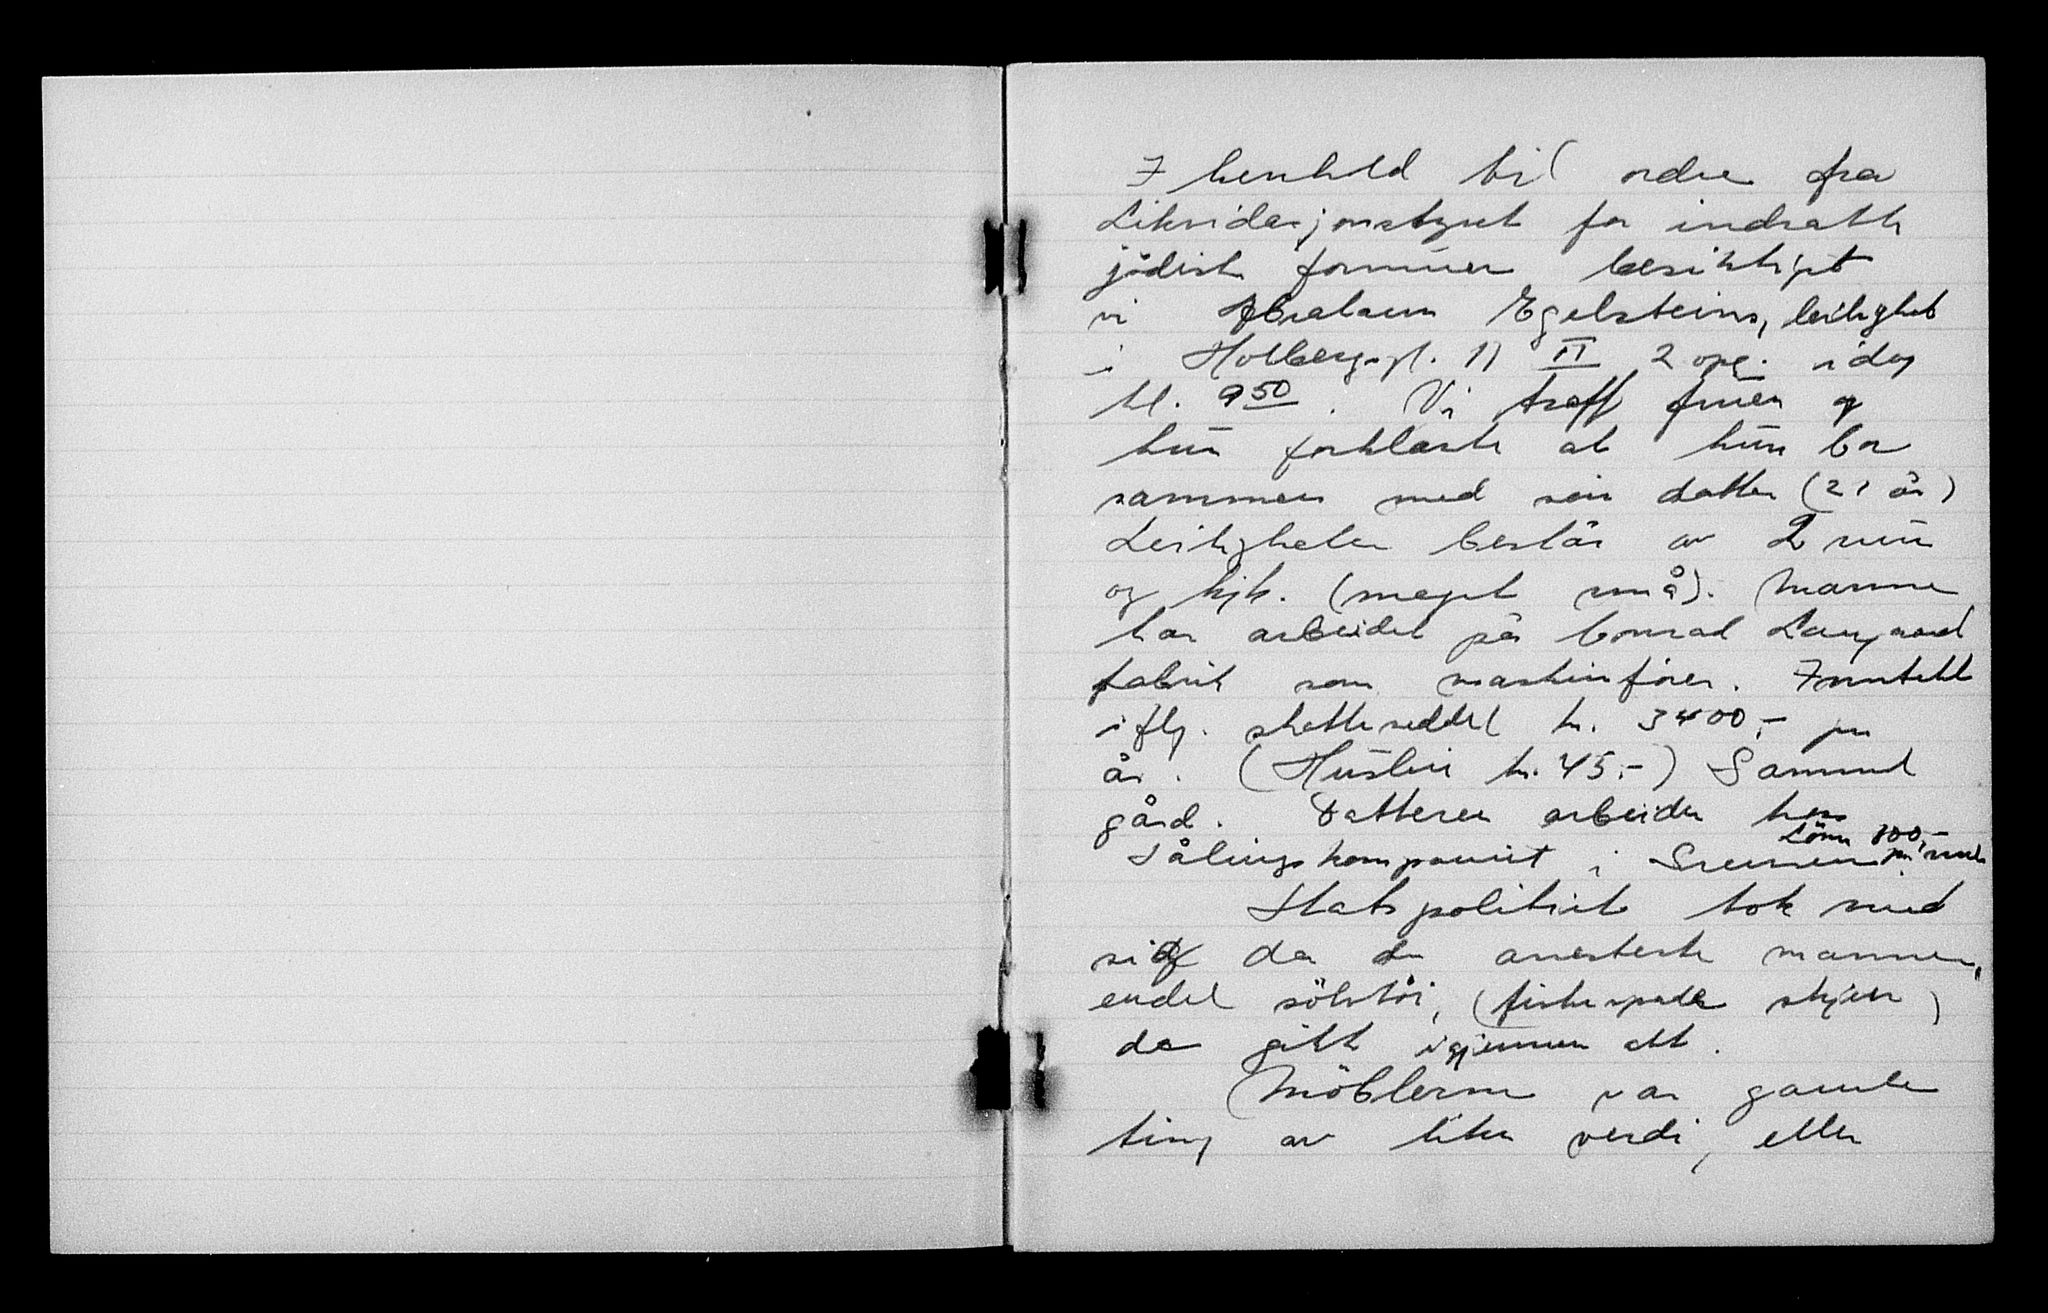 I henhold til ordre fra
Likvidasjonstyret for inndratte
jødisk formuer besiktiget
vi Abraham Egelsteins, leilighet
i Holbergsgt. 11 II 2 opg. idag
kl. 9 50. Vi traff fruen og
hun forklarte at hun bor
sammen med sin datter (21 år)
Leiligheten består av 2 rum
og kjk. (meget små). Mannen
har arbeidet på Conrad Langaard
fabrik som maskinfører. Inntekt
iflg. skatteseddel kr. 3400,- pr
år. (Husleie kr. 45.-) Sammel
gård. Datteren arbeider hos
Lønn 100,-
Sålingskompaniet i pr. mnd
Statspolitiet tok med
sig da de arresterte mannen,
endel sølvtøi, (fiskespade skjeer)
de gikk igjennem alt.
Møblerne var gamle
ting av liten verdi, eller